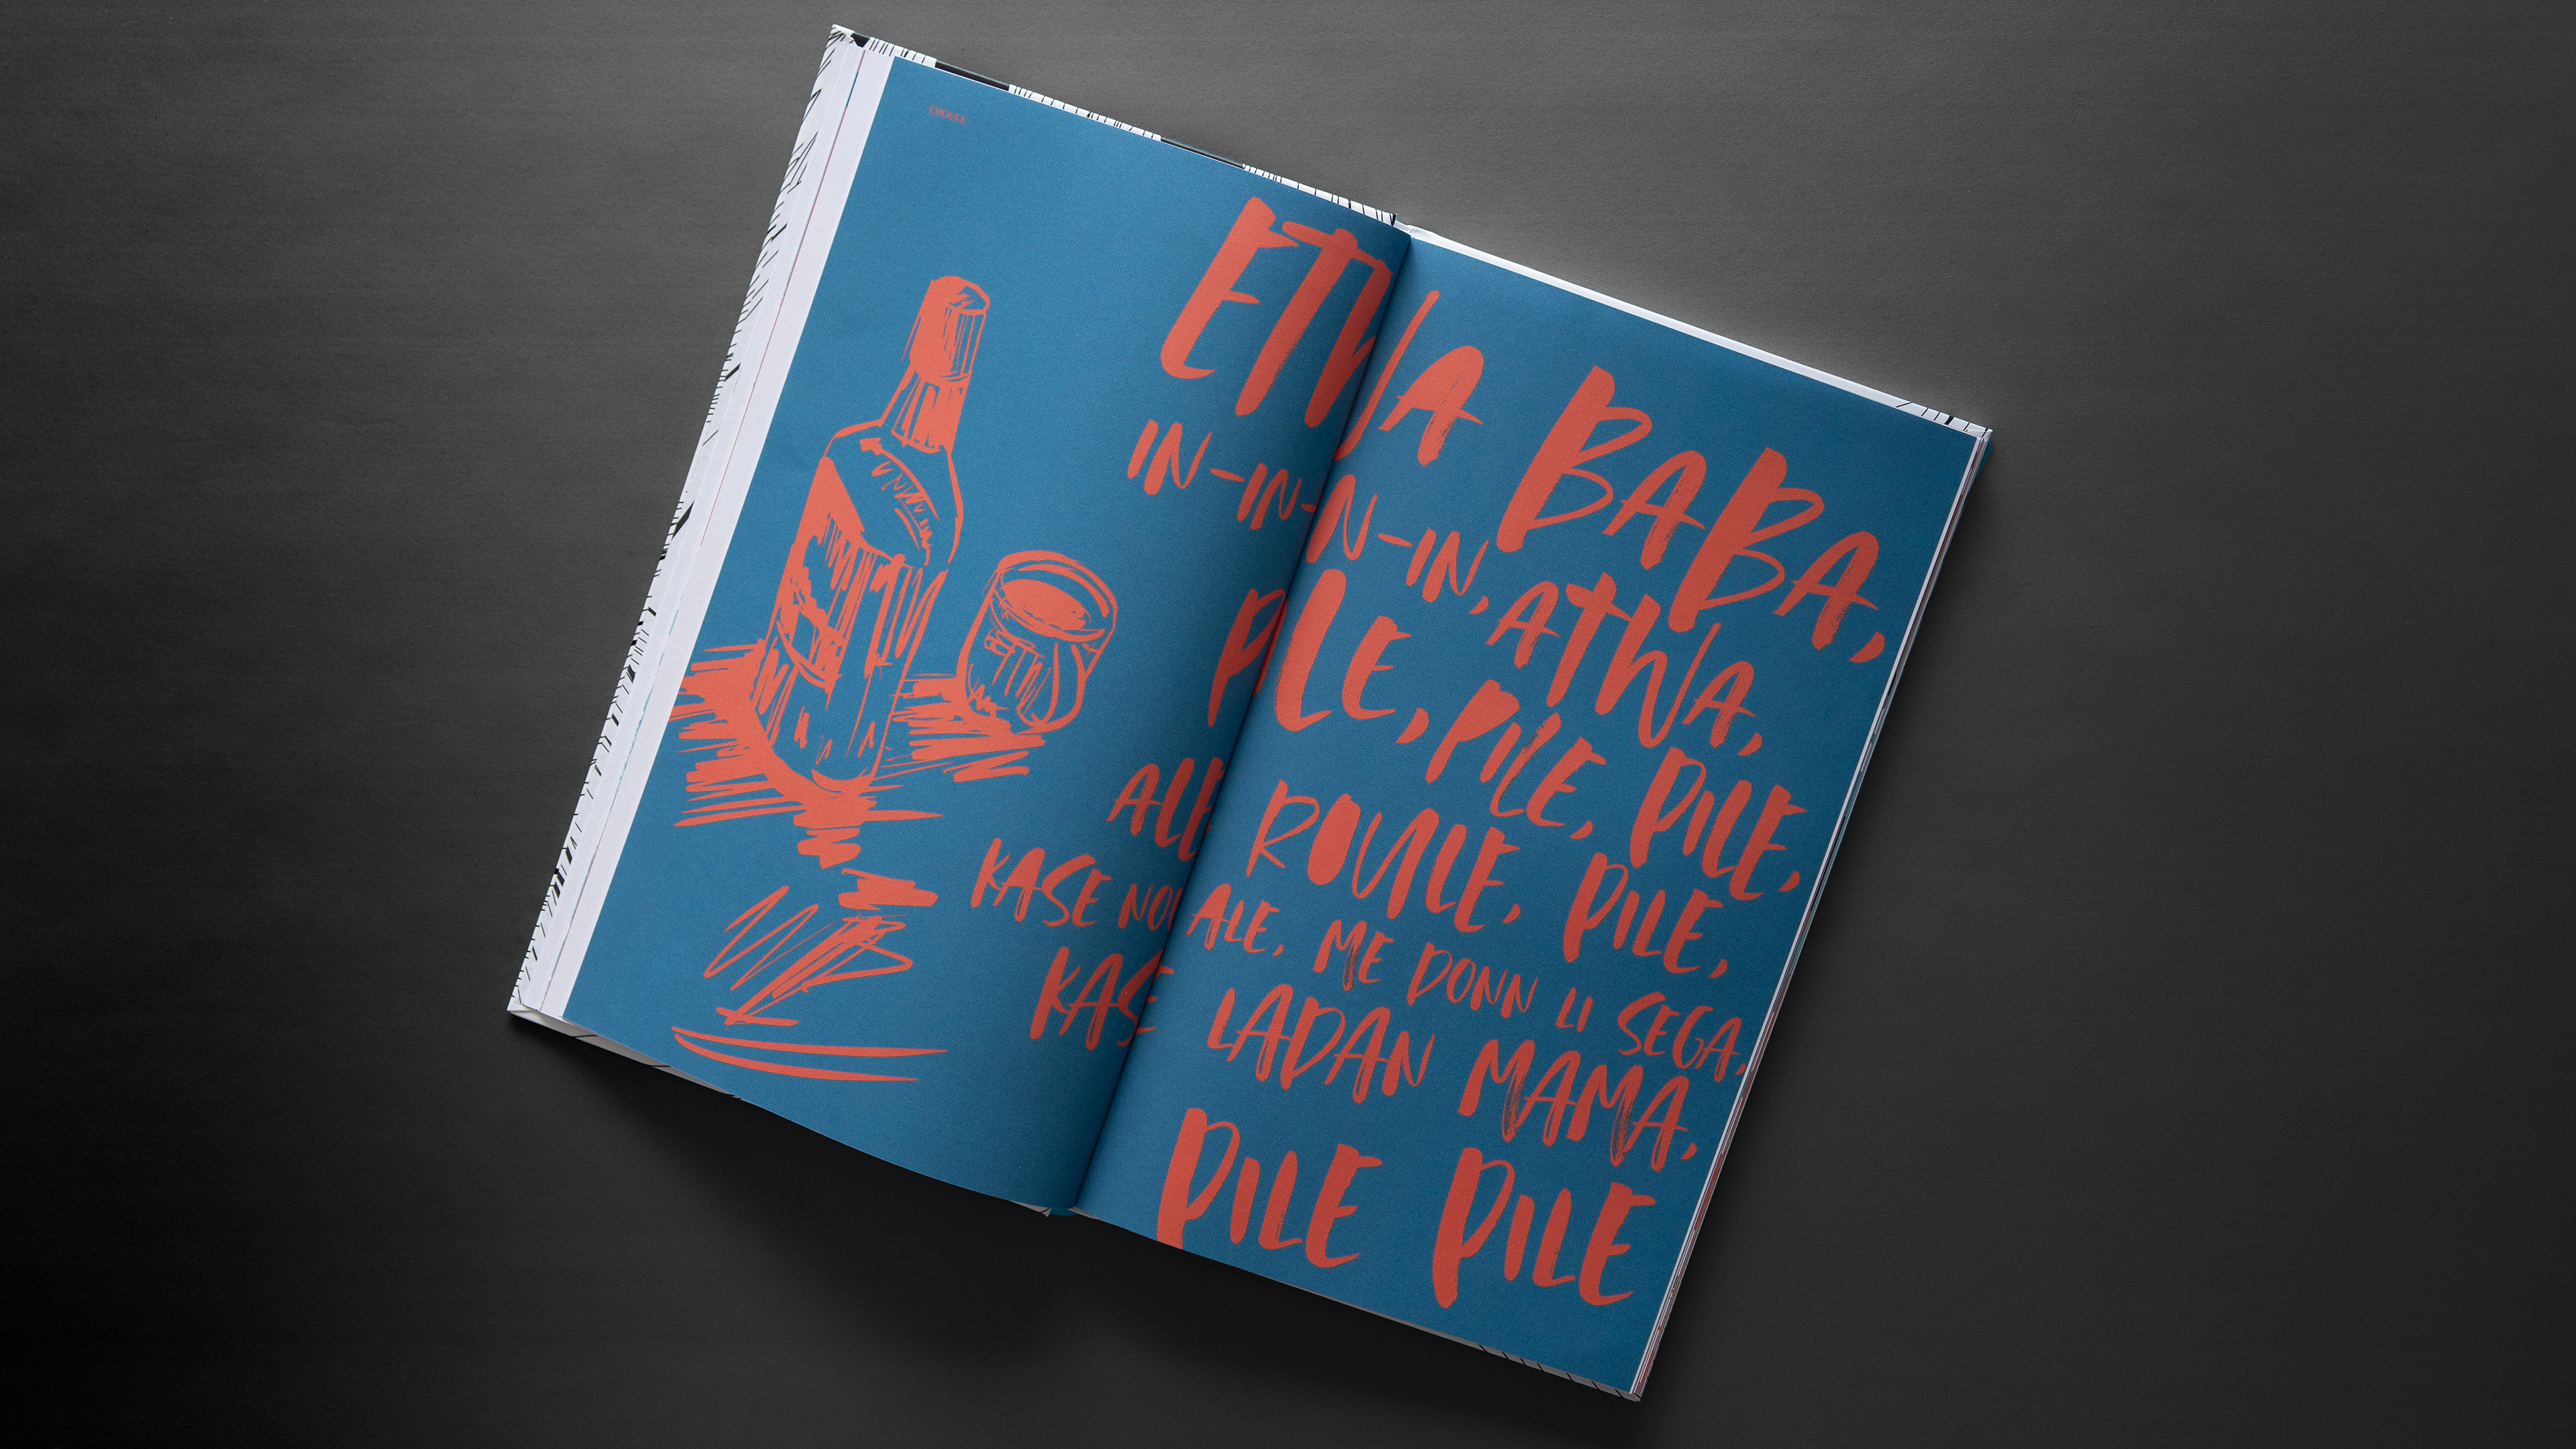 ETWA BABA,
IN-IN-IN-IN, ATWA,
PILE, PILE, PILE,
ALE ROULE, PILE,
KASE NOU ALE, ME DONN LI SEGA,
KASE LADAN MAMA,
PILE PILE